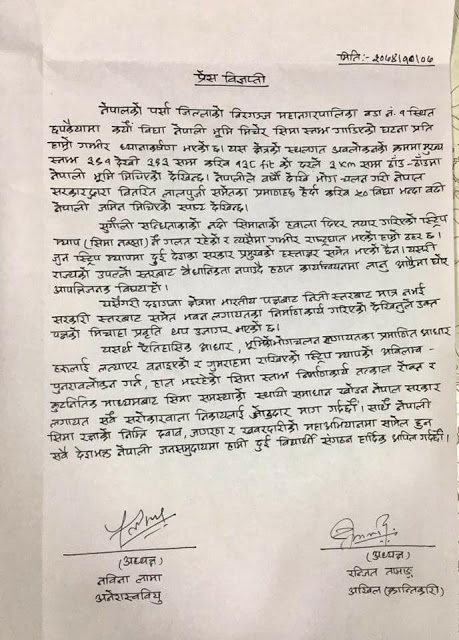 मिति:- २०७४।१०।०७
प्रेस विज्ञप्ती
नेपालको पर्सा जिल्लाको बिरगञ्ज महानगरपालिका वडा नं. १ स्थित
छपकैयामा कयौं विघा नेपाली भूमि मिचेर सिमा स्तम्भ गाडिएको घटना प्रति
हाम्रो गम्भीर ध्यानाकर्षण भएको छ। यस क्षेत्रको स्थलगत अवलोकनको क्रममा मुख्य
स्तम्भ देखी सम्म करिब १३८ fit का दरले ३ km सम्म ठाँउ-ठाँउमा
नेपाली भूमि मिचिएको देखिन्छ। नेपालीले वर्षौं देखि भोग चलन गरी नेपाल
सरकारद्वारा वितरित लालपुर्जा समेतका प्रमाणहरु हेर्दा करिब ५० विघा भन्दा बढी
नेपाली जमिन मिचिएको स्पष्ट देखिन्छ।
सुगौली सन्धिताकाको नदी सिमानाको हवाला दिएर तयार गरिएको स्ट्रिप
म्याप (सिमा नक्सा) नै गलत रहेको र त्यसैमा गम्भीर राष्ट्रघात भएको हाम्रो ठहर छ।
जुन स्ट्रिप म्यापमा दुई देशका सरकार प्रमुखको हस्ताक्षर समेत भएको छैन। यसरी
राज्यको उपल्लो स्तरबाट वैधानिकता नपाउँदै हठात कार्यान्वयनमा लानु आफैमा घोर
आपत्तिजनक विषय हो।
यसैगरी दशगजा क्षेत्रमा भारतीय पक्षबाट निजी स्तरबाट मात्र नभई
सरकारी स्तरबाट समेत भवन लगायतका निर्माणकार्य गरिएको देखिनुले उक्त
पक्षको मिचाहा प्रवृति थप उजागर भएको छ।
यसर्थ ऐतिहासिक आधार, भूमिको भोगचलन लगायतका प्रमाणित आधार
हरुलाई नत्याएर बनाइएको र गुमराहमा राखिएको स्ट्रिप म्यापको अविलम्ब -
पुनरावलोकन गर्न, हाल भइरहेको सिमा स्तम्भ निर्माणकार्य तत्काल रोक्न र
कुटनितिक माध्यमबाट सिमा समस्याको स्थायी समाधान खोज्न नेपाल सरकार
लगायत सबै सरोकारवाला निकायलाई जोडदार माग गर्दछौं। साथै नेपाली
सिमा रक्षाको निम्ति दबाब, जागरण र खबरदारीको महाअभियानमा सामेल हुन
सबै देशभक्त नेपाली जनसमुदायमा हामी दुई विद्यार्थी संगठन हार्दिक अपिल गर्दछौं।
(अध्यक्ष)
नविना लामा
अनेरास्ववियु
(अध्यक्ष)
रन्जित तामाङ्ग
अखिल (क्रान्तिकारी)